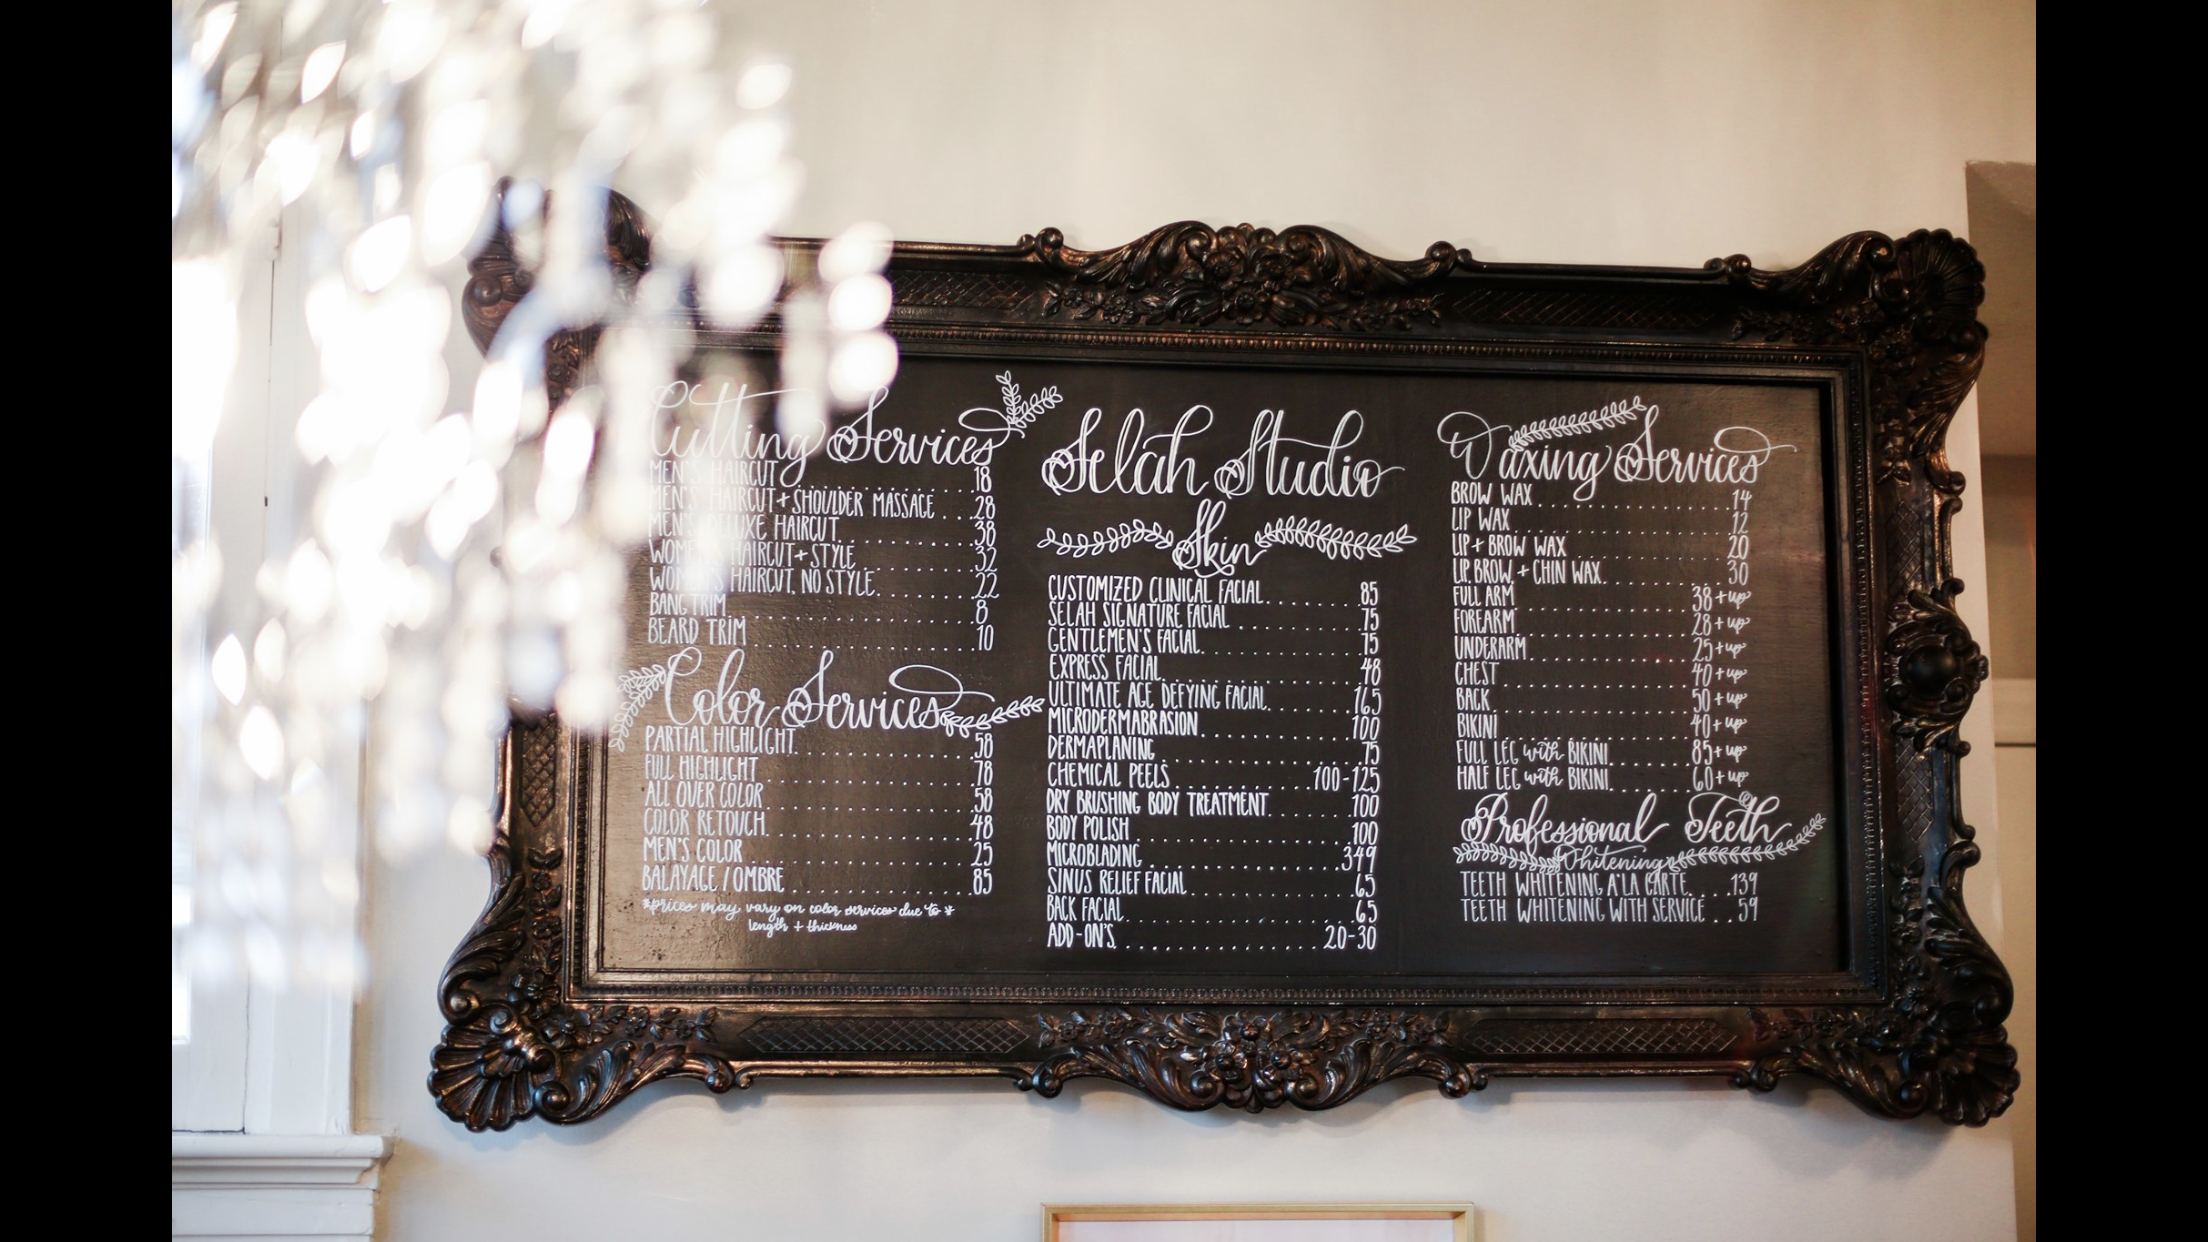 Cutting Services
MEN'S HAIRCUT 18
MEN'S HAIRCUT + SHOULDER MASSAGE 28
MEN'S DELUXE HAIRCUT 38
WOMEN'S HAIRCUT + STYLE 32
WOMEN'S HAIRCUT, NO STYLE 22
BANG TRIM 8
BEARD TRIM 10
Color Services
PARTIAL HIGHLIGHT 58
FULL HIGHLIGHT 78
ALL OVER COLOR 58
COLOR RETOUCH 48
MEN'S COLOR 25
BALAYAGE / OMBRE 85
*prices may vary on color services due to*
length + thickness
Selah Studio
Skin
CUSTOMIZED CLINICAL FACIAL 85
SELAH SIGNATURE FACIAL 75
GENTLEMEN'S FACIAL 75
EXPRESS FACIAL 48
ULTIMATE AGE DEFYING FACIAL 165
MICRODERMABRASION 100
DERMAPLANING 75
CHEMICAL PEELS 100-125
DRY BRUSHING BODY TREATMENT 100
BODY POLISH 100
MICROBLADING 349
SINUS RELIEF FACIAL 65
BACK FACIAL 65
ADD-ON'S 20-30
Waxing Services
BROW WAX 14
LIP WAX 12
LIP + BROW WAX 20
LIP, BROW, + CHIN WAX 30
FULL ARM 38 + up
FOREARM 28 + up
UNDERARM 25 + up
CHEST 40 + up
BACK 50 + up
BIKINI 40 + up
FULL LEG with BIKINI 85 + up
HALF LEG with BIKINI 60 + up
Professional Teeth
Whitening
TEETH WHITENING A'LA CARTE 139
TEETH WHITENING WITH SERVICE 59